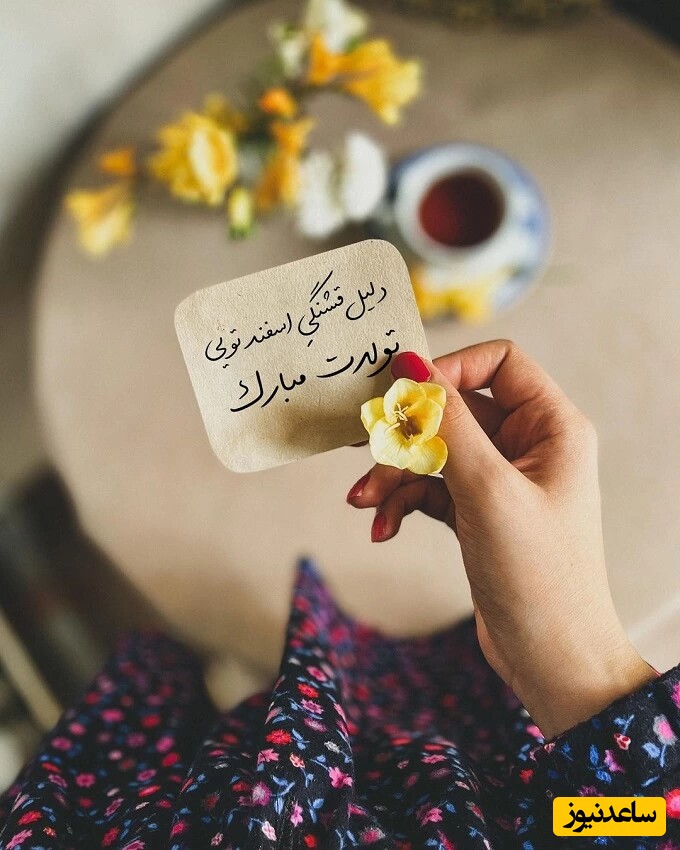 دلیل قشنگیِ اسفند تویی
تولدت مبارک
ساعدنیوز